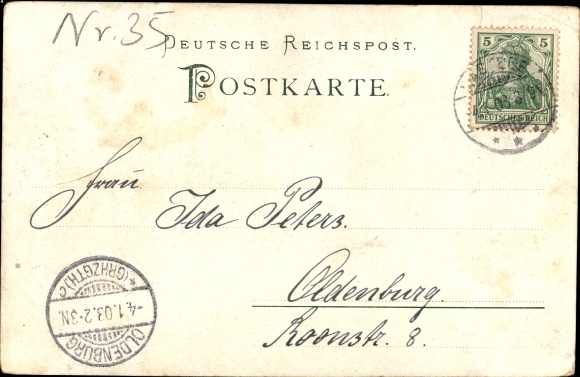 Nr. 35
DEUTSCHE REICHSPOST.
POSTKARTE.
5 5
DEUTSCHES REICH
Frau
Ida Peters.
Oldenburg.
Roonstr. 8.
*(GRHZGTH.)c
-4.1.03.2-3N.
OLDENBURG